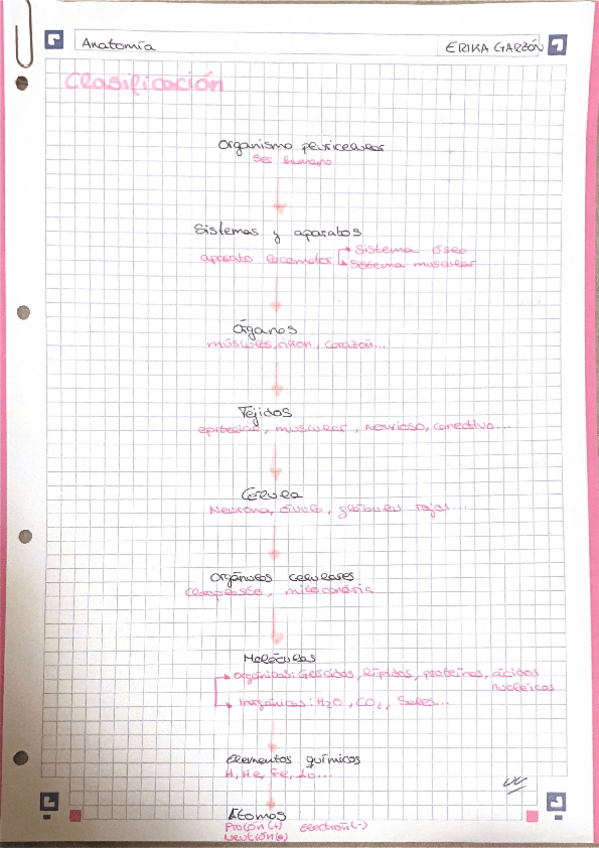 Anatomía
ERIKA GARZÓN
Clasificación
Organismo pluricelular
Ser humano
Sistemas y aparatos
aparato locomotor
Sistema óseo
Sistema muscular
Órganos
músculos, riñon, corazón...
Tejidos
epitelial, muscular, nervioso, conectivo...
Célula
Neurona, óvulo, glóbulos rojos...
Orgánulos celulares
mitocondria
Moléculas
Orgánicas: Glúcidos, lípidos, proteínas, ácidos
nucleicos
Inorgánicas: H₂O, CO₂, Sales...
Elementos químicos
H, He, Fe,
Átomos
Protón (+) Electrón (-)
Neutrón